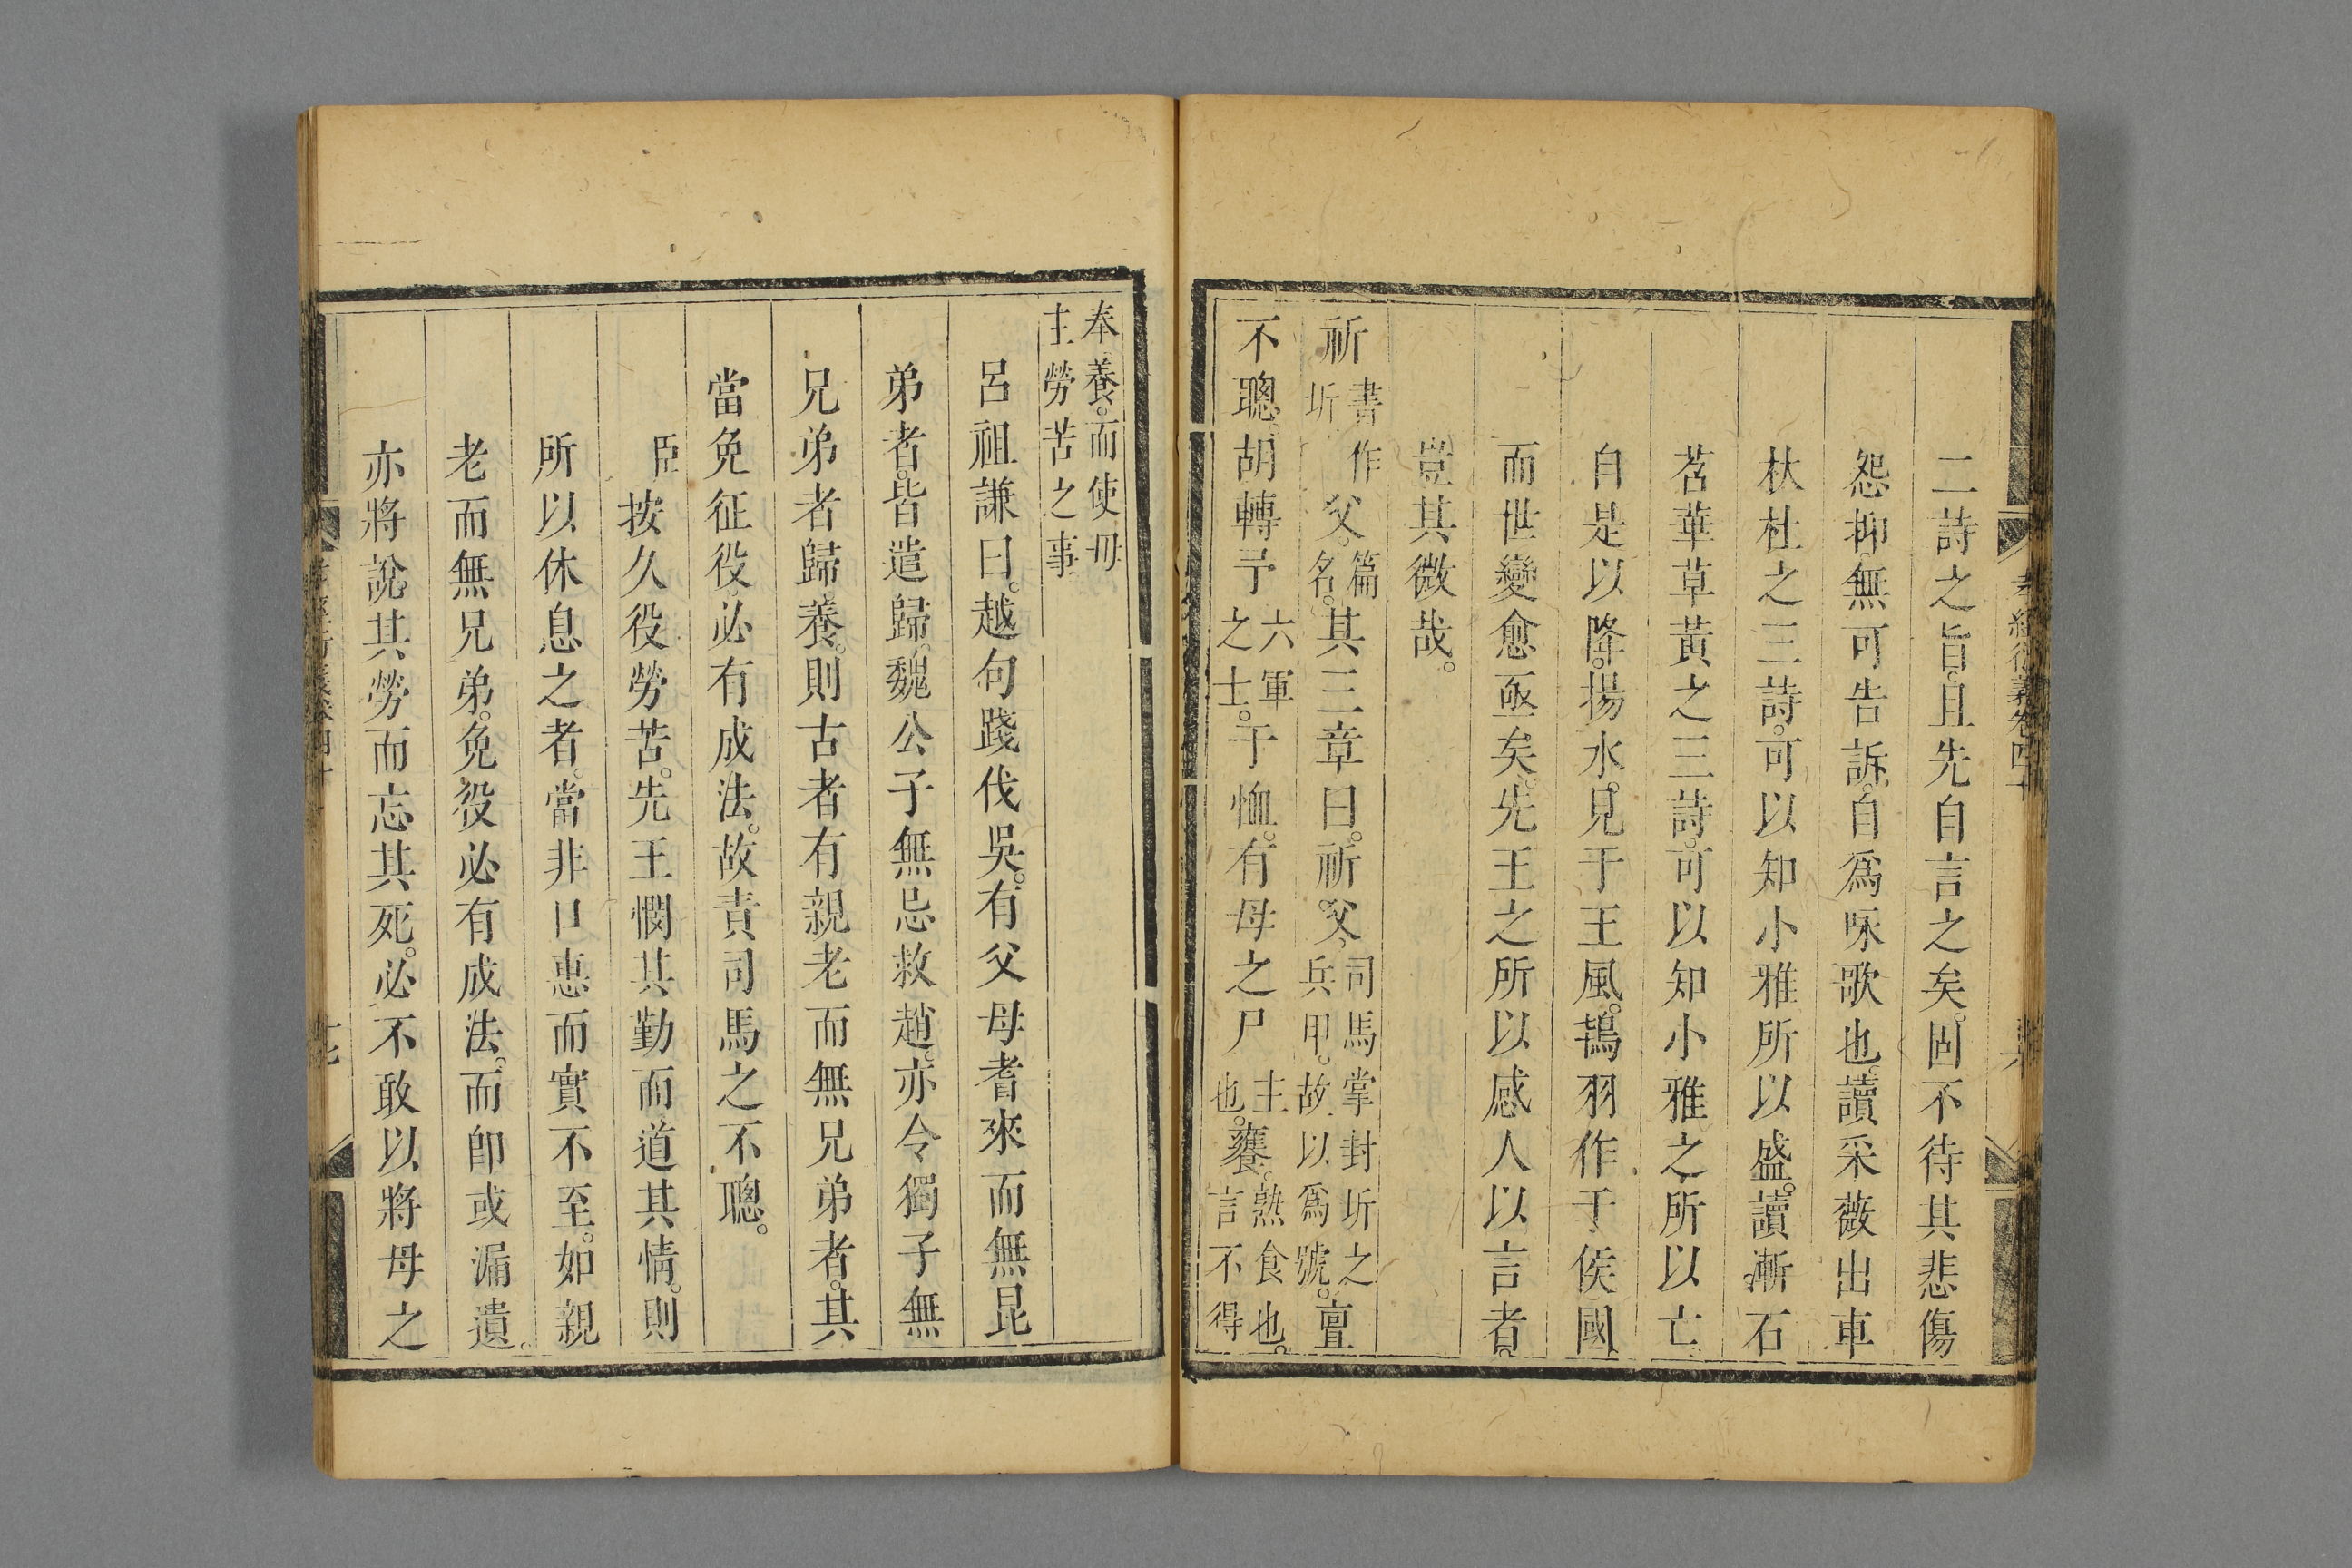 二詩之旨。且先自言之矣。固不待其悲傷
怨抑。無可告訴。自爲咏歌也。讀采薇出車
杕杜之三詩。可以知小雅所以盛。讀漸石
苕華草黃之三詩。可以知小雅之所以亡。
自是以降。揚水。見于王風。鴇羽作于侯國。
而世變愈亟矣。先王之所以感人以言者。
豈其微哉。
祈書作圻父。篇名。其三章曰。祈父。司馬掌封圻之兵甲。故以爲號。亶
不聰。胡轉予六軍之士。于恤。有母之尸主也。饔。熟食也。言不得
奉養。而使母主勞苦之事
呂祖謙曰。越句踐伐吳。有父母耆來而無昆
弟者。皆遣歸。魏公子無忌救趙。亦令獨子無
兄弟者歸養。則古者有親老而無兄弟者。其
當免征役。必有成法。故責司馬之不聰。
臣按久役勞苦。先王憫其勤而道其情。則
所以休息之者。當非口惠而實不至。如親
老而無兄弟。免役必有成法。而卽或漏遺。
亦將說其勞而忘其死。必不敢以將母之